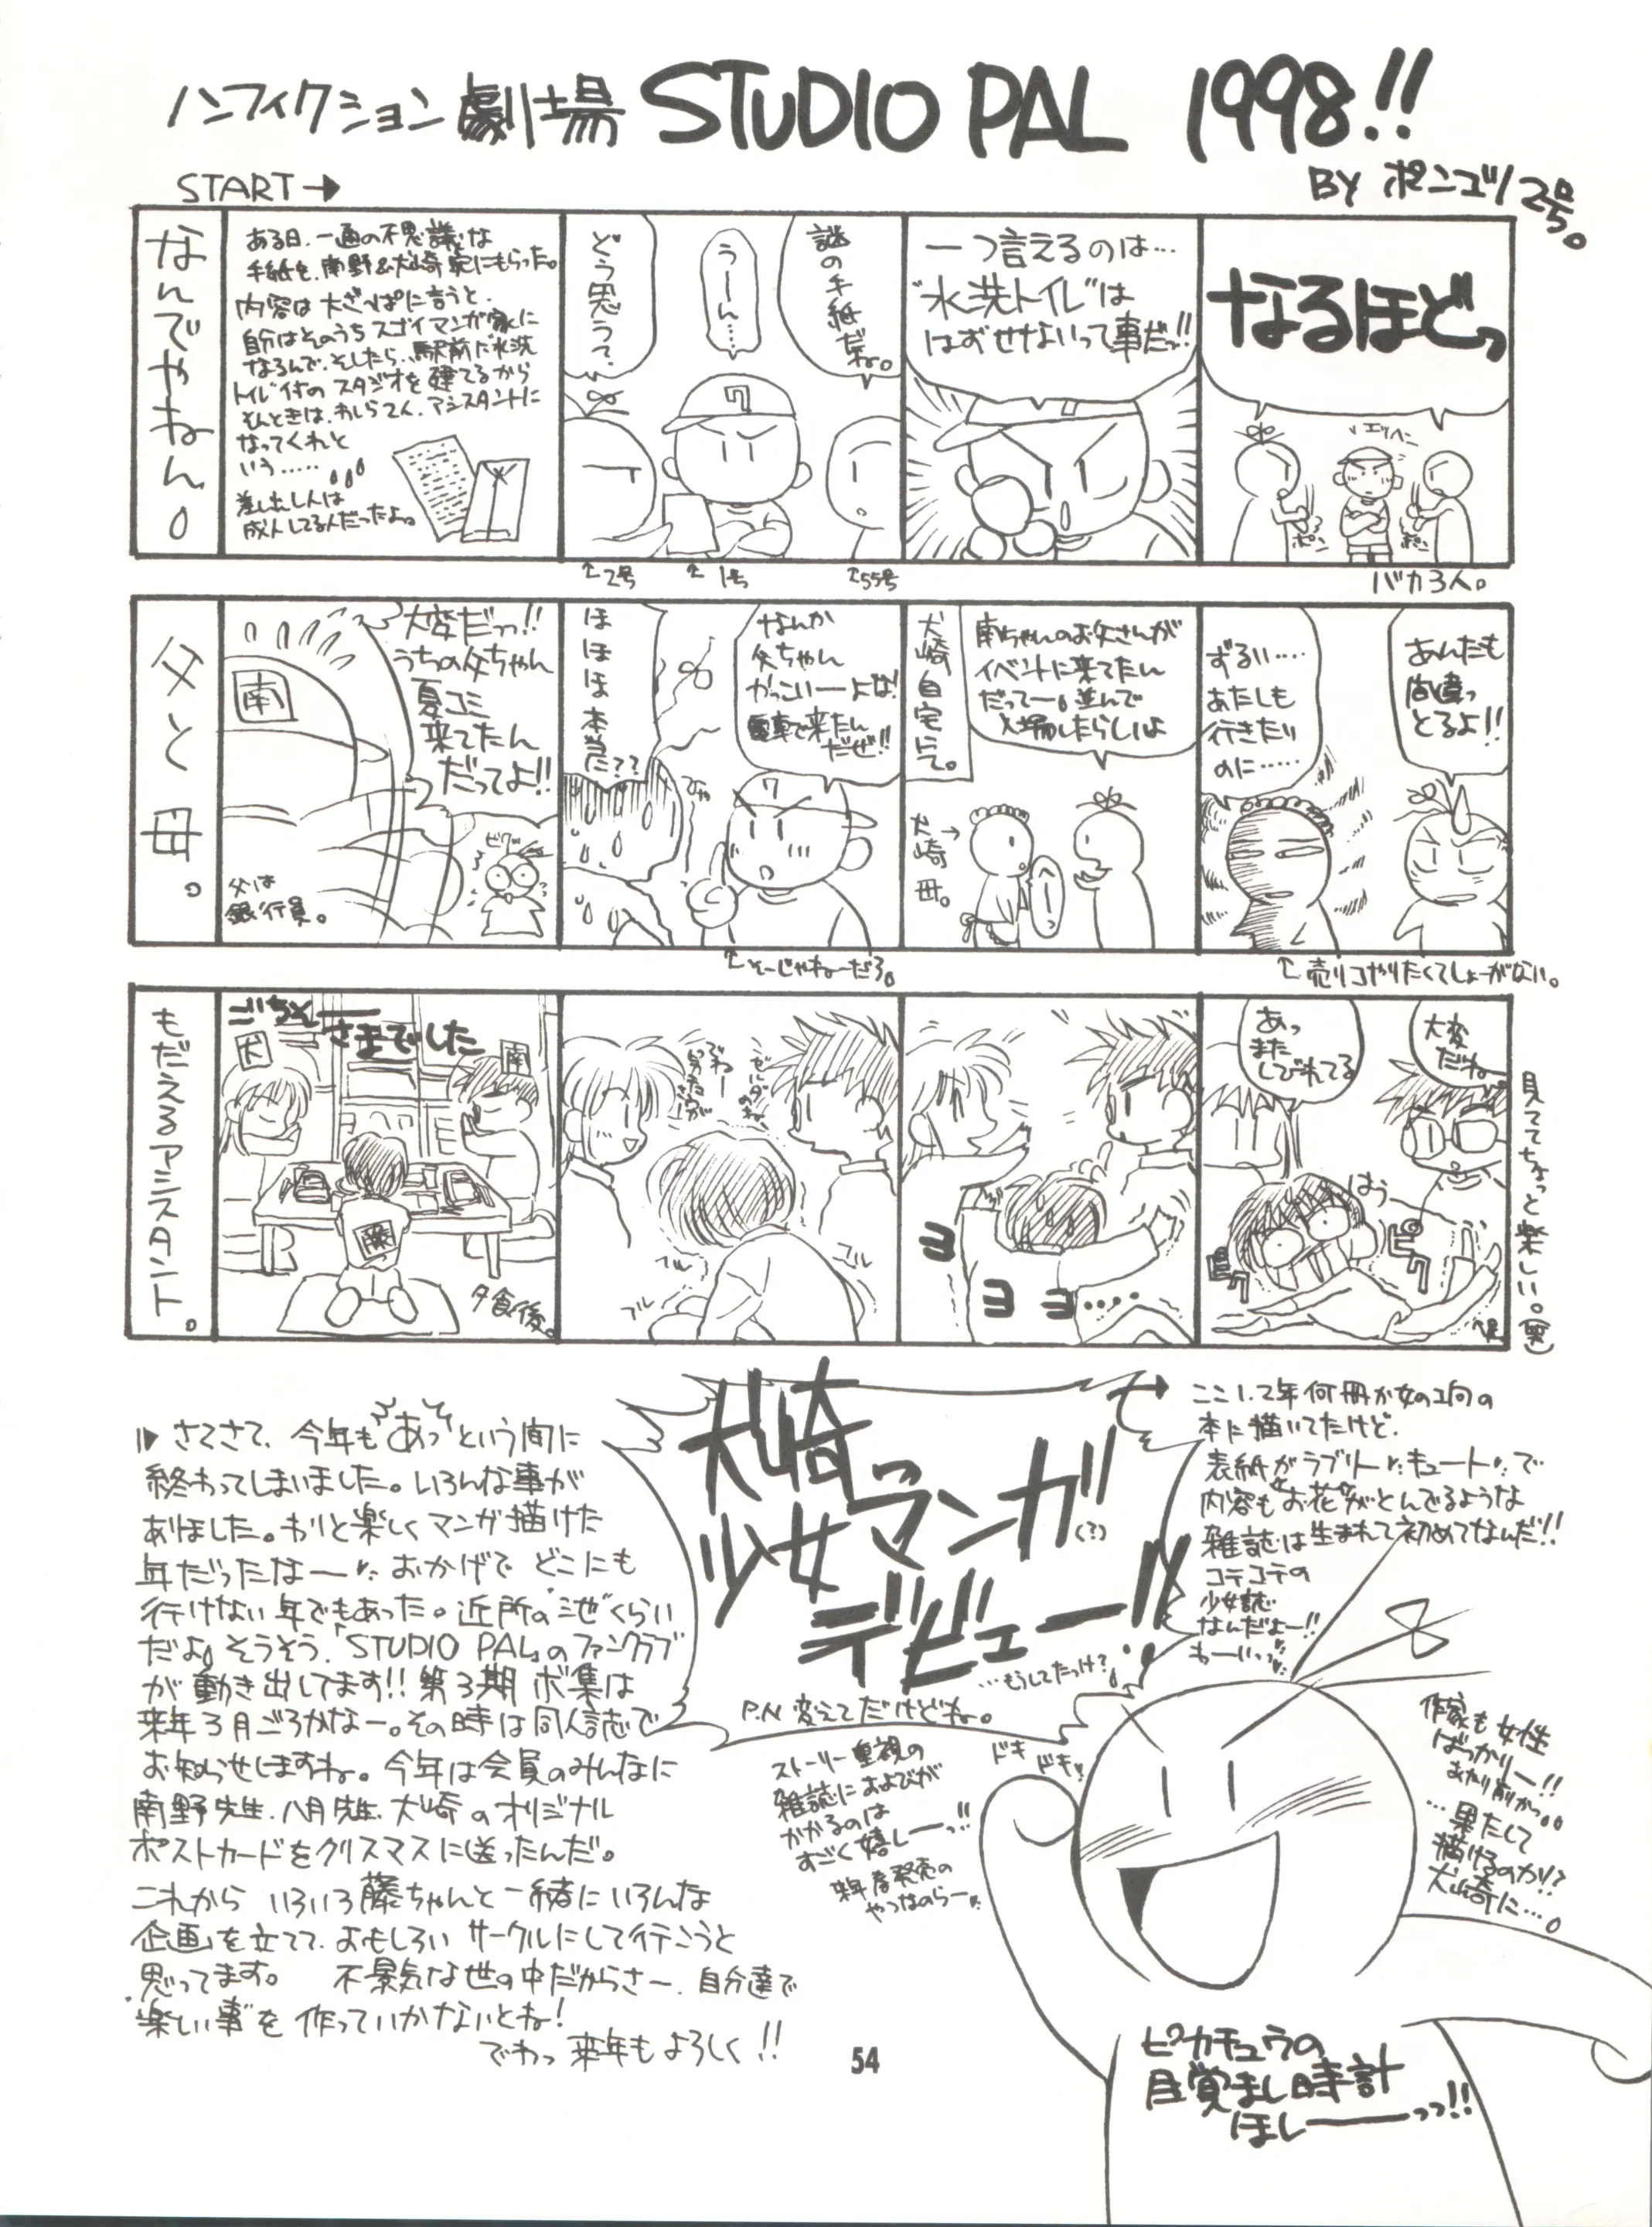 ノンフィクション劇場 STUDIO PAL 1998!!
BY ポンコツ2号。
START→
なんでやねん。
ある日、一通の不思議な
手紙を、南野&犬崎宛にもらった。
内容は大ざっぱに言うと、
自分はそのうちスゴイマンガ家に
なるんで、そしたら、駅前に水洗
トイレ付のスタジオを建てるから
そんときは、わしらてく、アシスタントに
なってくれと
いう……
差し出し人は
成人してる人だったよっ。
謎の手紙だね。
うーん…
どう思うって?
↑2号
↑1号
↑55号
一つ言えるのは…
"水洗トイレ"は
はずせないって事だっ!!
なるほどっ
エッヘン
ポン
ポン
バカ3人。
父と母。
大変だっ!!
うちの父ちゃん
夏コミ
来てたん
だってよ!!
南
ビクッ
父は
銀行員。
なんか
父ちゃん
かっこいーよな!
電車で来たんだぜ!!
ほほほ本当に??
↑そーじゃねーだろ。
犬崎自宅にて。
南ちゃんのお父さんが
イベントに来てたん
だってー。並んで
入場したらしいよ
犬崎母。→
へーっ
あんたも
間違っ
とるよ!!
ずるい……
あたしも
行きたい
のに……
↑売りコやりたくてしょーがない。
もだえるアシスタント。
ごちそーさまでした
犬
南
藤
夕食後。
ゼルダのね
でねー
フル
フル
ヨ
ヨ
ヨ・・・・
大変だね。
あっ
また
しびれてる
はうー
ピク
ピク
見ててちょっと楽しい。(笑)
さてさて、今年も"あっ"という間に
終わってしまいました。いろんな事が
ありました。わりと楽しくマンガ描けた
年だったなー おかげで どこにも
行けない年でもあった。近所の"池"くらい
だよ。そうそう、「STUDIO PAL」のファンクラブ
が動き出してます!! 第3期ボ集は
来年3月ごろかなー。その時は同人誌で
お知らせしますね。今年は会員のみんなに
南野先生、八月先生、犬崎のオリジナル
ポストカードをクリスマスに送ったんだ。
これから いろいろ藤ちゃんと一緒にいろんな
企画を立てて、おもしろい サークルにして行こうと
思ってます。 不景気な世の中だからさー、自分達で
楽しい事を作っていかないとね!
でわっ 来年もよろしく!!
犬崎
少女マンガ(?)
デビュー!!
…もうしてたっけ?
P.N 変えてだけどね。
ここ1、2年何冊か女のコ向の
本に描いてたけど、
表紙がラブリーキュートで
内容も"お花"がとんでるような
雑誌は生まれて初めてなんだ!!
コテコテの
少女誌
なんだよー!!
わーいっっ
ストーリー重視の
雑誌におよびが
かかるのは
すごく嬉しーっ!!
来年春発売の
やつなのらー
ドキ
ドキ
作家も女性
ばっかりー!!
あたり前かっ
…果たして
描けるのか!?
犬崎に…。
ピカチュウの
目覚まし時計
ほしーーーっっ!!
54